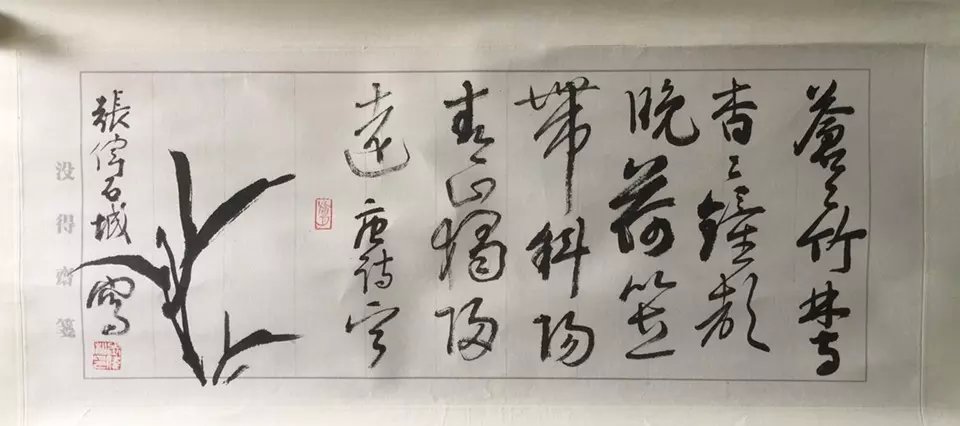 蒼々竹林寺
杳々鐘聲
晚荷笠
帶斜陽
青山獨歸
遠 唐詩
張 石城 寫
没得齋箋